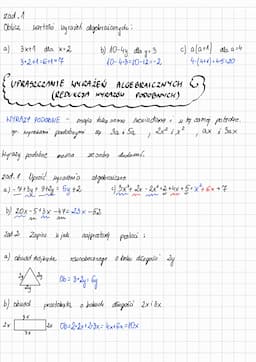 zad. 1
Oblicz wartość wyrażeń algebraicznych:
a) 3x+1 dla x=2 b) 10-4y dla y=3 c) a(a+1) dla a=4
3·2+1=6+1=7 10-4·3=10-12=-2 4·(4+1)=4·5=20
UPRASZCZANIE WYRAŻEŃ ALGEBRAICZNYCH
(REDUKCJA WYRAZÓW PODOBNYCH)
WYRAZY PODOBNE - mają taką samą i w tej samej potędze.
np. wyrazami podobnymi są 3a i 5a, 2x² i x², ax i 3ax
Wyrazy podobne można ze sobą dodawać.
zad. 1 Uprość wyrażenia algebraiczne
a) -7+3y+9+2y = 5y+2 c) 3x²+2x-2x²+2+4x+5 = x²+6x+7
b) 20x-5+3x-47 = 23x-52
zad. 2 Zapisz w jak najprostszej postaci:
a) obwód trójkąta równobocznego o boku długości 2y
2y 2y Ob = 3·2y = 6y
2y
b) obwód prostokąta o bokach długości 2x i 3x.
3x
2x Ob = 2·2x+2·3x = 4x+6x = 10x
3x